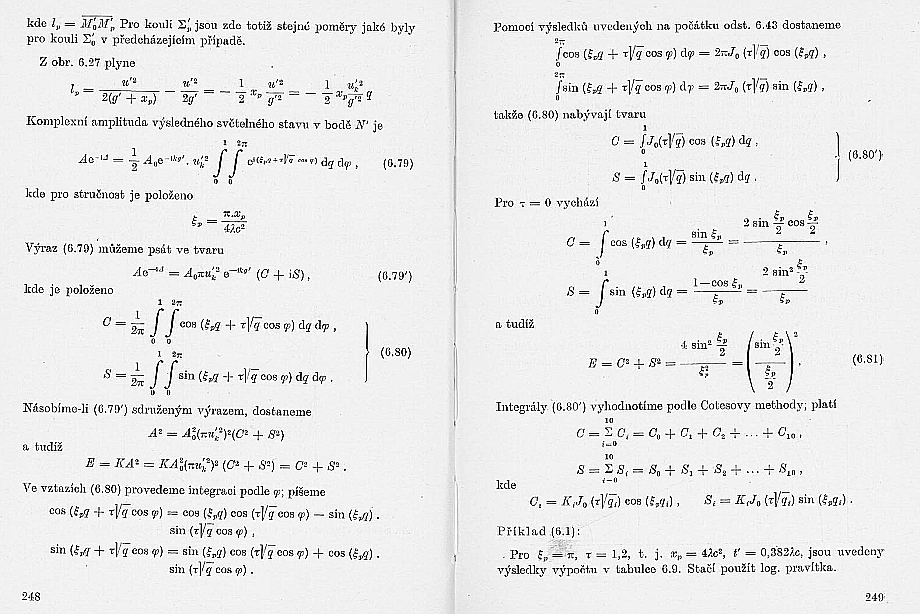 kde l_p = M'_0M'_p. Pro kouli Σ'_p jsou zde totiž stejné poměry jaké byly
pro kouli Σ'_0 v předcházejícím případě.
Z obr. 6.27 plyne
l_p = u'²/2(g' + x_p) − u'²/2g' = − 1/2 x_p u'²/g'² = − 1/2 x_p u'²_k/g'² q
Komplexní amplituda výsledného světelného stavu v bodě N' je
Ae^{−iΔ} = 1/2 A_0e^{−ikg'} . u'²_k ∫_0^1 ∫_0^{2π} e^{i(ξ_pq + τ√q cos φ)} dq dφ , (6.79)
kde pro stručnost je položeno
ξ_p = π.x_p/4λc²
Výraz (6.79) můžeme psát ve tvaru
Ae^{−iΔ} = A_0πu'²_k e^{−ikg'} (C + iS) , (6.79')
kde je položeno
C = 1/2π ∫_0^1 ∫_0^{2π} cos (ξ_pq + τ√q cos φ) dq dφ ,
(6.80)
S = 1/2π ∫_0^1 ∫_0^{2π} sin (ξ_pq + τ√q cos φ) dq dφ .
Násobíme-li (6.79') sdruženým výrazem, dostaneme
A² = A²_0(πu'²_k)²(C² + S²)
a tudíž
E = KA² = KA²_0(πu'²_k)² (C² + S²) = C² + S² .
Ve vztazích (6.80) provedeme integraci podle φ; píšeme
cos (ξ_pq + τ√q cos φ) = cos (ξ_pq) cos (τ√q cos φ) − sin (ξ_pq) .
sin (τ√q cos φ) ,
sin (ξ_pq + τ√q cos φ) = sin (ξ_pq) cos (τ√q cos φ) + cos (ξ_pq) .
sin (τ√q cos φ) .
248
Pomocí výsledků uvedených na počátku odst. 6.43 dostaneme
∫_0^{2π} cos (ξ_pq + τ√q cos φ) dφ = 2πJ_0 (τ√q) cos (ξ_pq) ,
∫_0^{2π} sin (ξ_pq + τ√q cos φ) dφ = 2πJ_0 (τ√q) sin (ξ_pq) ,
takže (6.80) nabývají tvaru
C = ∫_0^1 J_0(τ√q) cos (ξ_pq) dq ,
(6.80')
S = ∫_0^1 J_0(τ√q) sin (ξ_pq) dq .
Pro τ = 0 vychází
C = ∫_0^1 cos (ξ_pq) dq = sin ξ_p/ξ_p = 2 sin ξ_p/2 cos ξ_p/2 / ξ_p ,
S = ∫_0^1 sin (ξ_pq) dq = 1−cos ξ_p/ξ_p = 2 sin² ξ_p/2 / ξ_p
a tudíž
E = C² + S² = 4 sin² ξ_p/2 / ξ²_p = (sin ξ_p/2 / ξ_p/2)² . (6.81)
Integrály (6.80') vyhodnotíme podle Cotesovy methody; platí
C = Σ_{i=0}^{10} C_i = C_0 + C_1 + C_2 + ... + C_10 ,
S = Σ_{i=0}^{10} S_i = S_0 + S_1 + S_2 + ... + S_10 ,
kde
C_i = K_iJ_0 (τ√q_i) cos (ξ_pq_i) , S_i = K_iJ_0 (τ√q_i) sin (ξ_pq_i) .
Příklad (6.1):
Pro ξ_p = π, τ = 1,2, t. j. x_p = 4λc², t' = 0,382λc, jsou uvedeny
výsledky výpočtu v tabulce 6.9. Stačí použít log. pravítka.
249